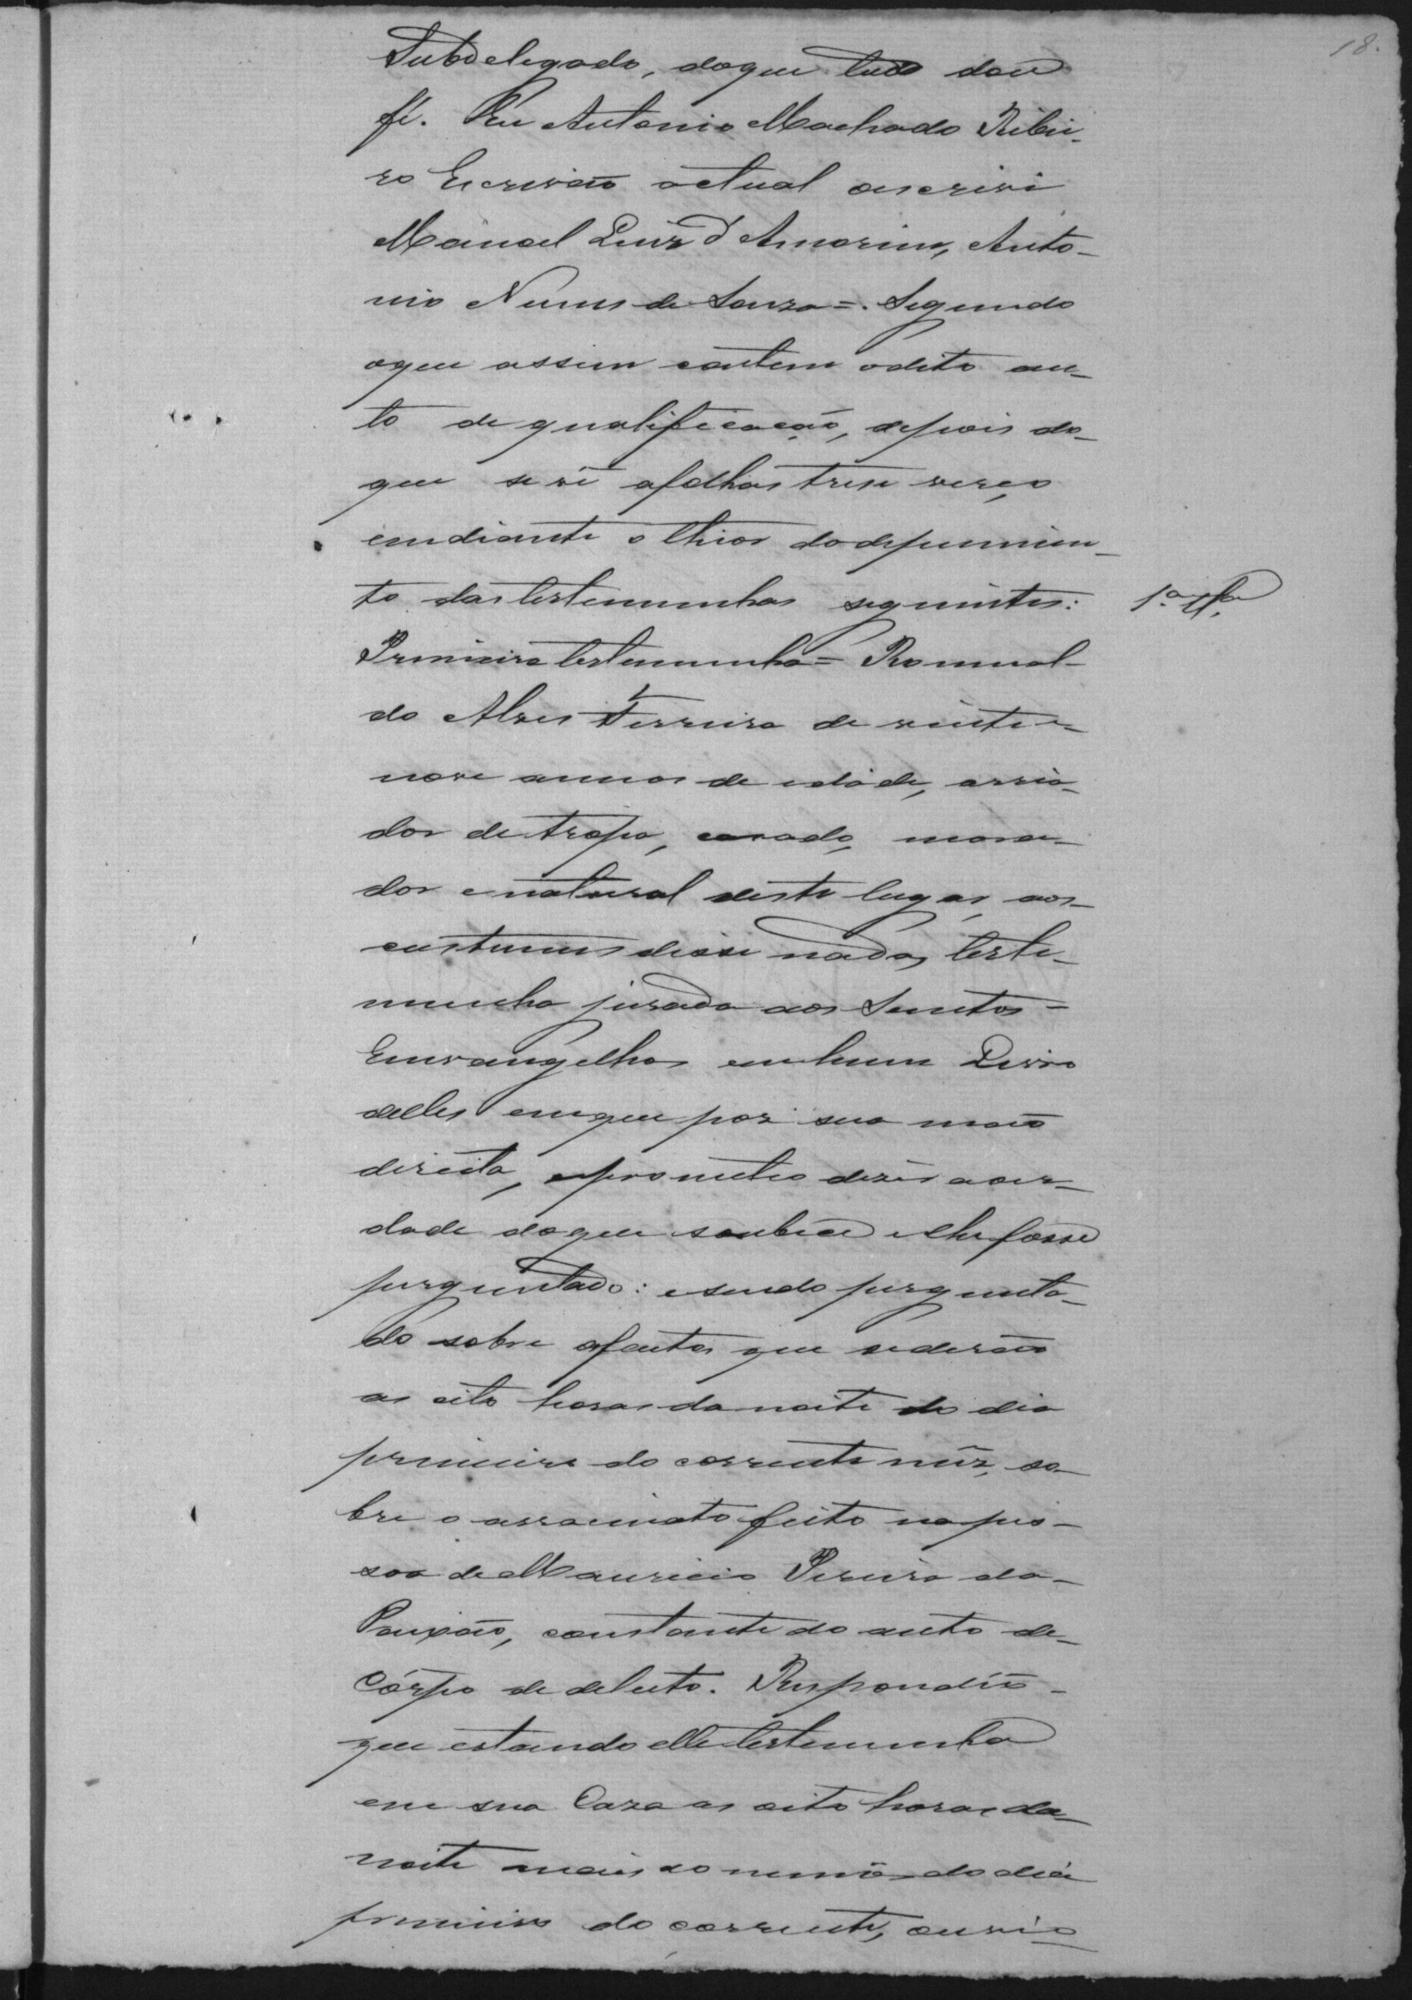 18.
Subdelegado, doque tudo dou
fé. Eu Antonio Machado Ribei-
ro Escrivão actual oescrivi
Manoel Luiz d'Amorim, Anto-
nio Nunes de Souza =. Segundo
oque assim contem odito au-
to de qualificação, depois do-
que se vê afolhas trese verço
emdiante o theor dodepuimen-
to das testemunhas seguintes:
1.a Tta.
Primeira testemunha = Romual-
do Alves Ferreira de vinte e-
nove annos de edade, arria-
dor de tropa, casado, mora-
dor enatural deste lugar, aos-
custumes disse nada, teste-
munha jurada aos Santos =
Emvangelhos emhum Livro
delles emque pos sua mão
direita, eprometeo dizer aver-
dade doque soubece elhe fosse
perguntado: esendo pergunta-
do sobre ofactos que sederão
as oito horas da noite do dia
primeiro do corrente mêz, so-
bre o assacinato feito na pes-
soa de Mauricio Pereira da-
Paixão, constante do auto de-
Córpo de delicto. Respondeo-
que estando elle testemunha
em sua Caza as oito horas da-
noite mais ou menos do dia
primeiro do corrente, ouvio-